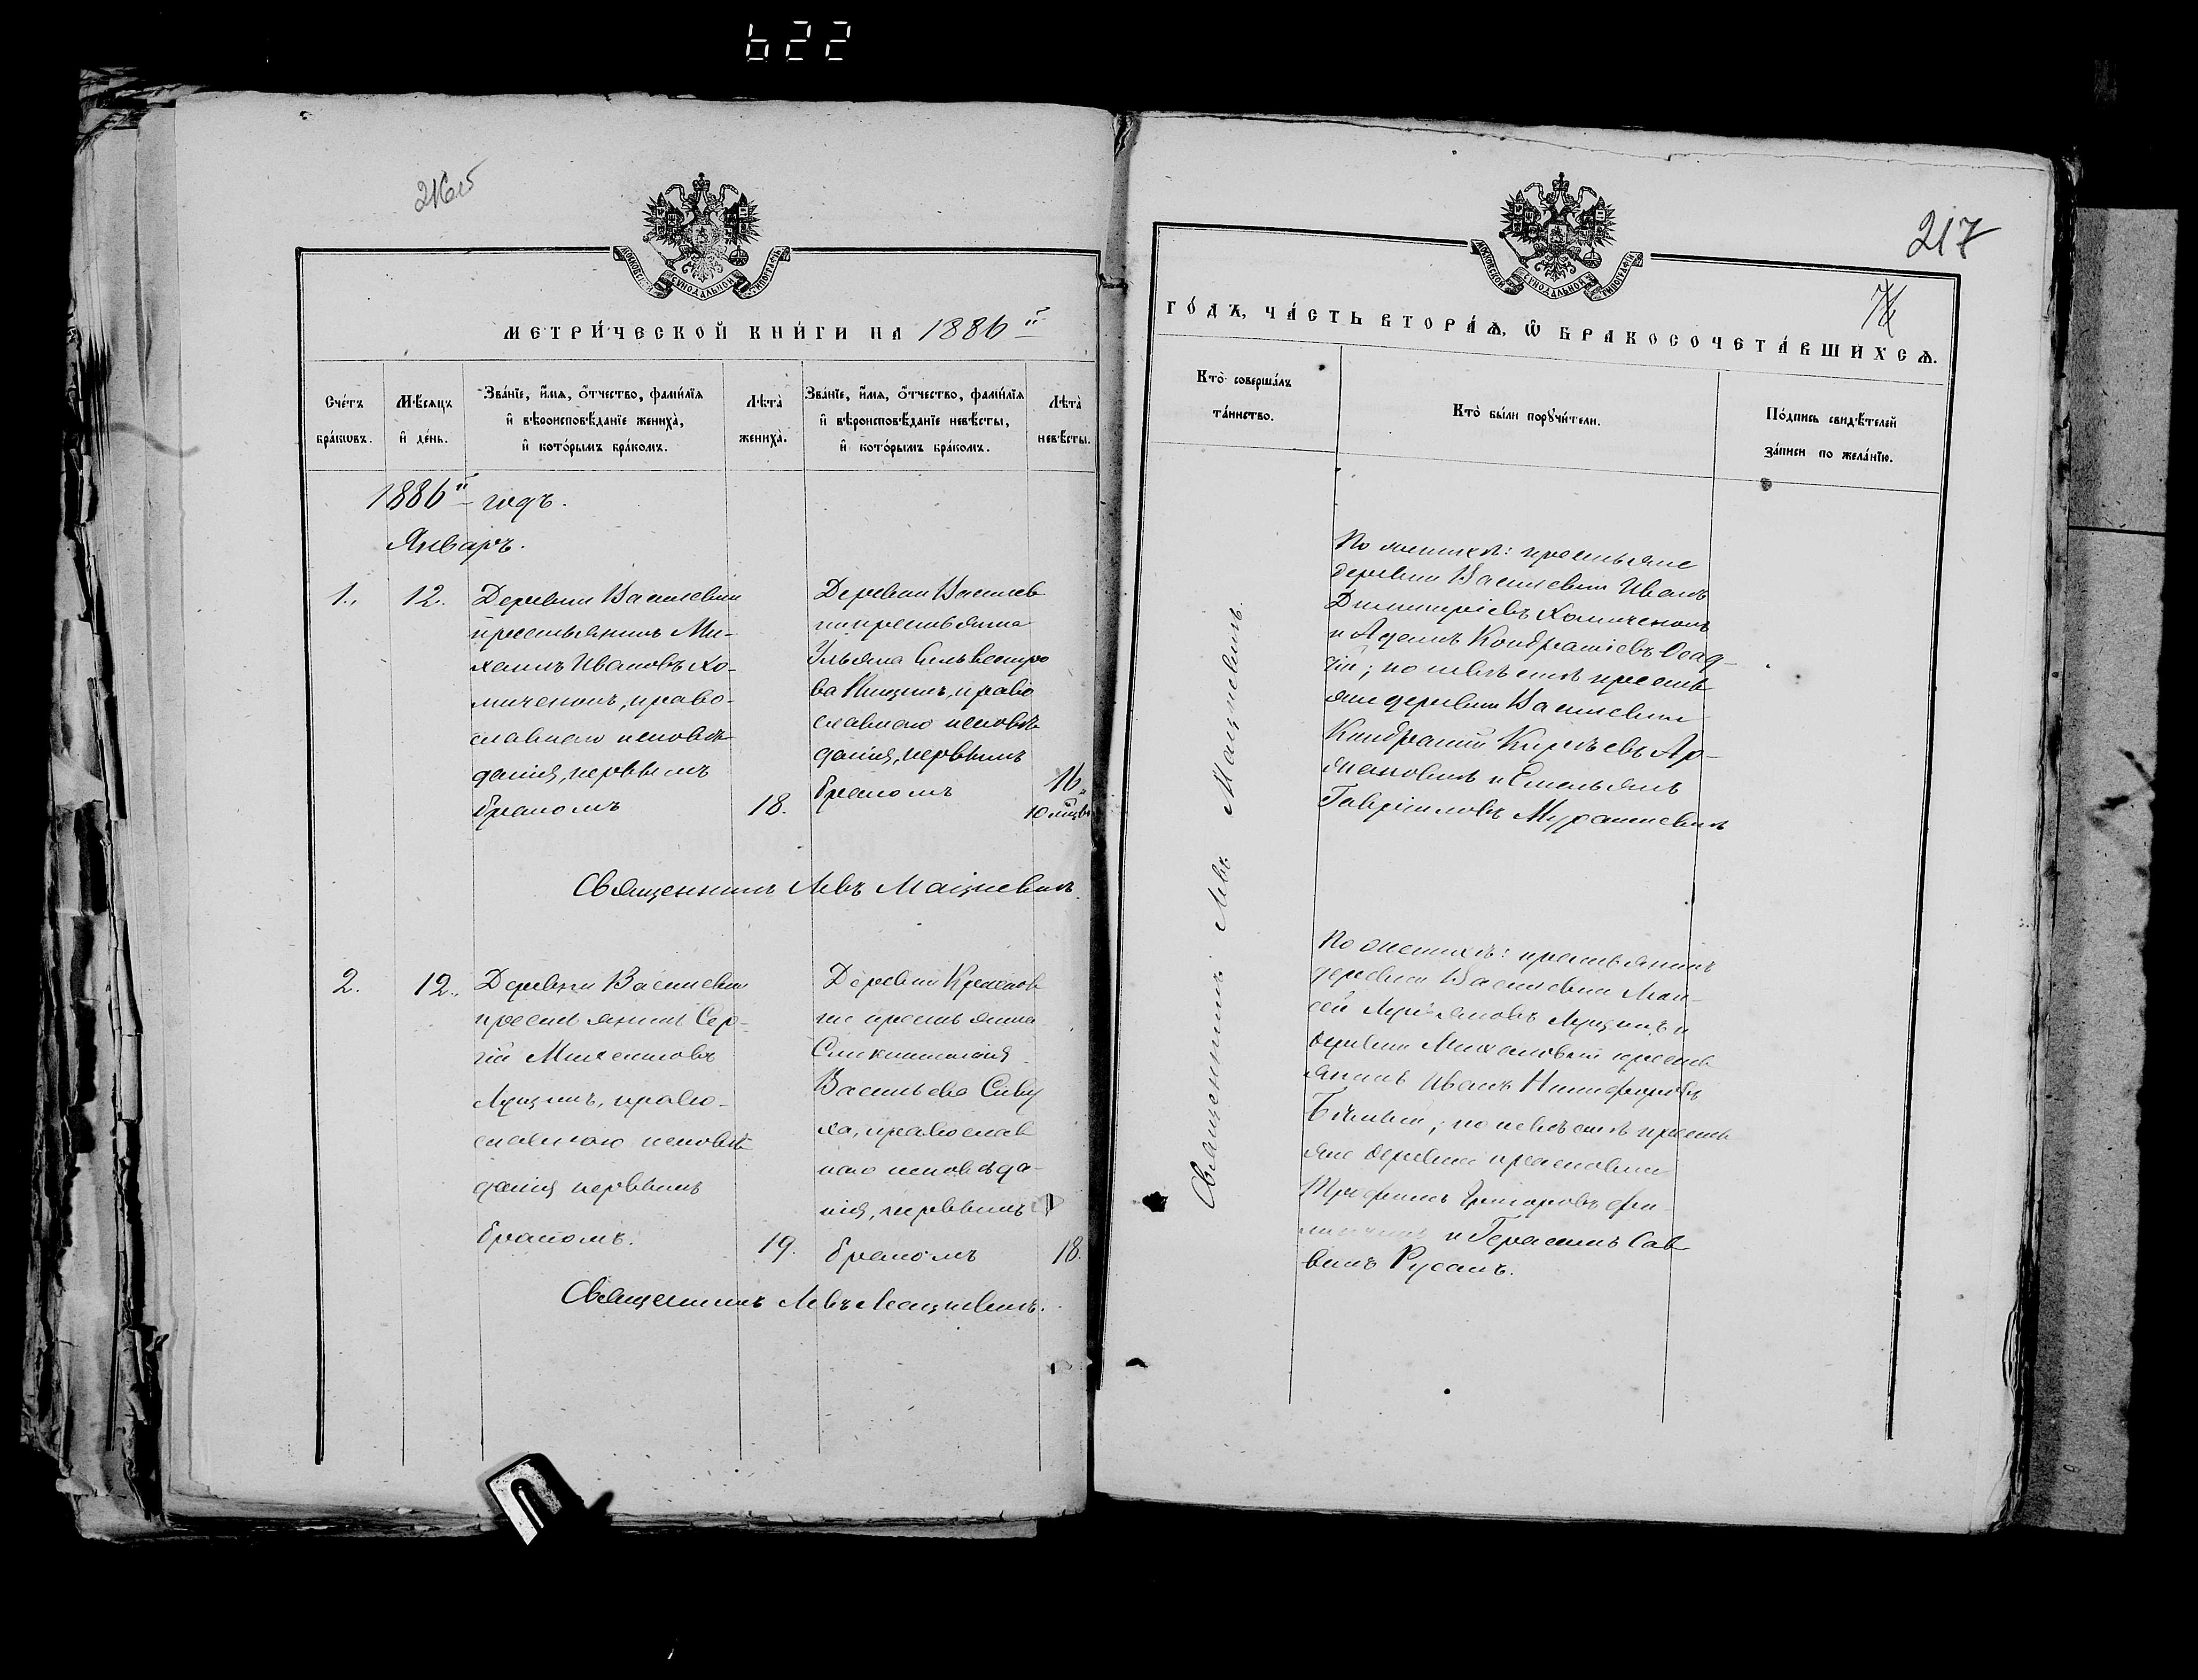 622
216об
МЕТРИ́ЧЕСКОЙ КНИ́ГИ НА 1886й
Сче́тъ бра́ковъ.
Мѣсяцъ и҆ де́нь.
Зва́нїе, и҆́мя, о҆́тчество, фами́лїя и҆ вѣроисповѣ́данїе жениха̀, и҆ кото́рымъ бра́комъ.
Лѣта̀ жениха̀.
Зва́нїе, и҆́мя, о҆́тчество, фами́лїя и҆ вѣроисповѣ́данїе невѣ́сты, и҆ кото́рымъ бра́комъ.
Лѣта̀ невѣ́сты.
1886й годъ.
Январь.
1.
12.
Деревни Василевки
крестьянинъ Ми-
хаилъ Ивановъ Хо-
миченокъ, право-
славнаго исповѣ-
данія, первымъ
бракомъ
18.
Деревни Василев
ки крестьянка
Ульяна Сильвестро
ва
право
славнаго исповѣ
данія, первымъ
бракомъ
16.
10 мѣсцвъ
Священникъ Левъ Мацкевичъ.
2.
12.
Деревни Василевки
крестьянинъ Сер-
гій
Луцикъ, право-
славнаго исповѣ
данія первымъ
бракомъ.
19.
Деревни
ки крестьянка
Васильева Сиву
ха, православ
наго исповѣда-
нія, первымъ
бракомъ
18.
Священникъ Левъ Мацкевичъ.
217
МОСКОВСКОЙ СѴНОДАЛЬНОЙ ТИПОГРАФІИ
ГО́ДЪ, ЧА́СТЬ ВТОРА́Ѧ, Ѡ҆ БРАКОСОЧЕТА́ВШИХСѦ.
Кто̀ соверша́лъ
та́инство.
Кто̀ бы́ли порꙋчи́тели.
По́дпись свидѣ́телей
за́писи по жела́нїю.
Священникъ Левъ Мацкевичъ.
По женихѣ: крестьяне
деревни Василевки Иванъ
Димитріевъ Хомиченокъ
и Адамъ Кондратіевъ Осад-
чій; по невѣстѣ крестья
яне деревни Василевки
Кондратій
и Емельянъ
Гавріиловъ
По женихѣ: крестьянинъ
деревни Василевки Мои-
сей Луцикъ и
деревни крестья
янинъ Иванъ Никифоровъ
по невѣстѣ крестья
яне деревни
Трофимъ Григоровъ
и Герасимъ Сав
винъ Русакъ.